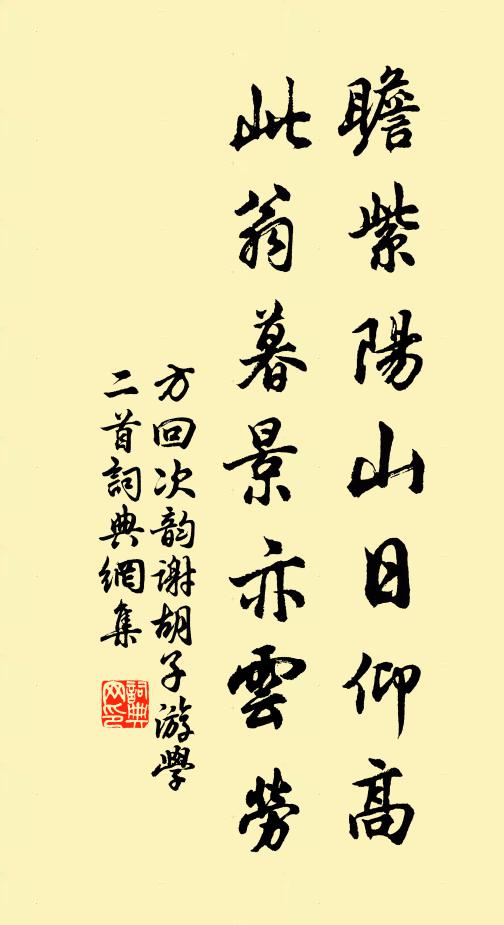 瞻紫陽山日仰高
此翁暮景亦雲勞
方回次韵谢胡子游學
二首詞典網集
詞典
网印